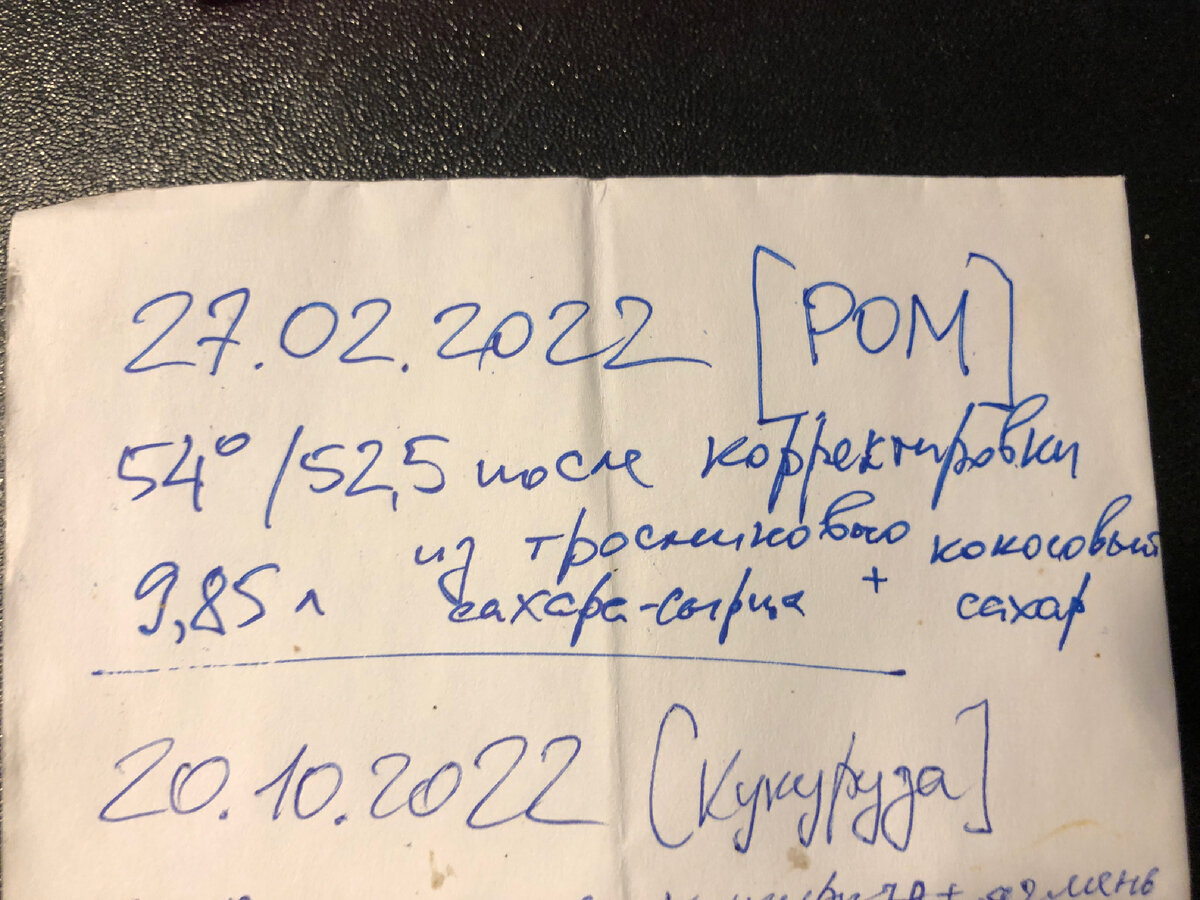 27.02.2022 [РОМ]
54° /52,5 после корректировки
из тросникового + кокосовый
9,85 л сахара-сырца сахар
20.10.2022 [Кукуруза]
+ ячмень